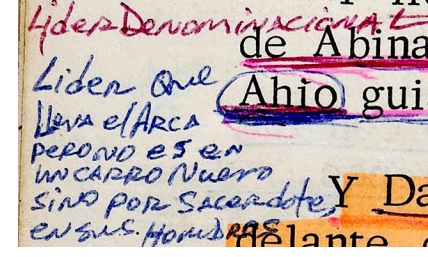 Y
LiderDenominacional
de Abina
Lider Que
Ahio gui
lleva el ARCA
pero no es en
un carro Nuevo
Y Da
sino por Sacerdote,
en sus Hombros
delante